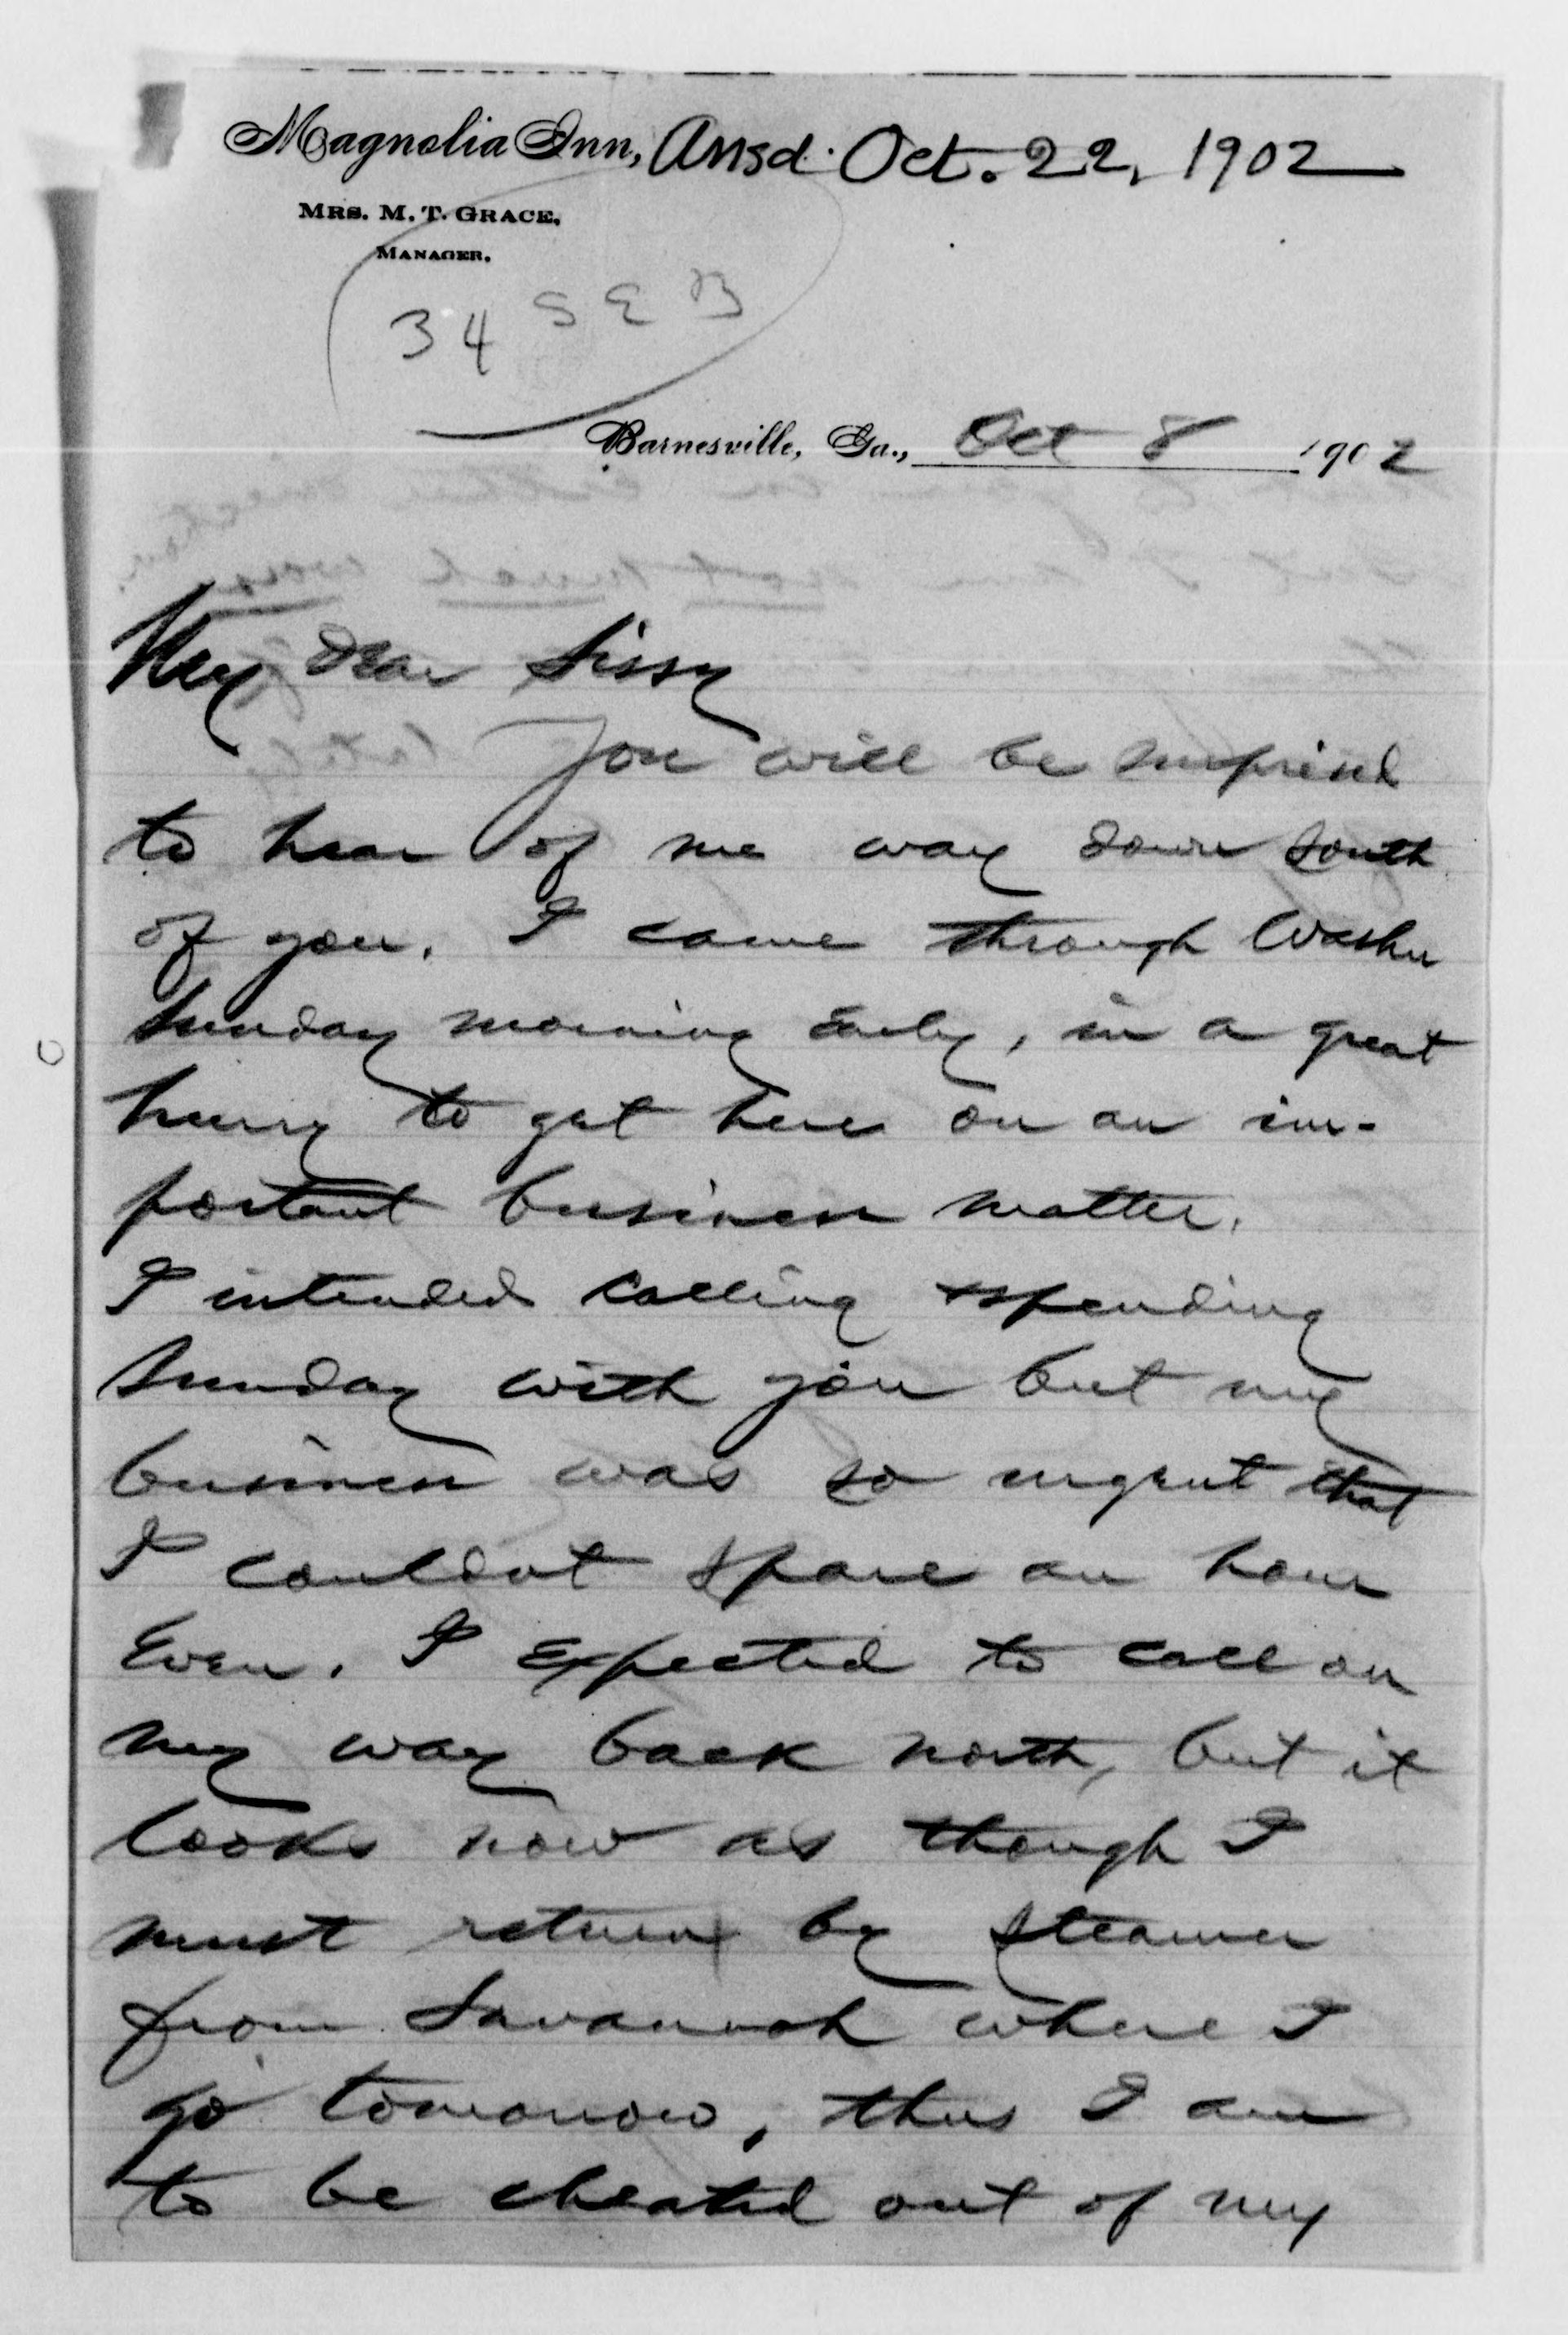 Magnolia Inn, Ansd. Oct. 22, 1902
MRS. M. T. GRACE,
MANAGER.
34 SEB
Barnesville, Ga., Oct 8 1902
My dear Sissy
You will be surprised
to hear of me way down south
of you. I came through Washn
Sunday morning early, in a great
hurry to get here on an im-
portant business matter.
I intended calling & spending
Sunday with you but my
business was so urgent that
I couldnt spare an hour
even. I expected to call on
my way back north, but it
looks now as though I
must return by steamer
from Savannah where I
go tomorrow, thus I am
to be cheated out of my